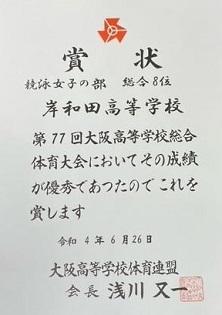 賞状
競泳女子の部 総合8位
岸和田高等学校
第77回大阪高等学校総合
体育大会においてその成績
が優秀であつたのでこれを
賞します
令和 4年6月26日
大阪高等学校体育連盟
会長 浅川又一